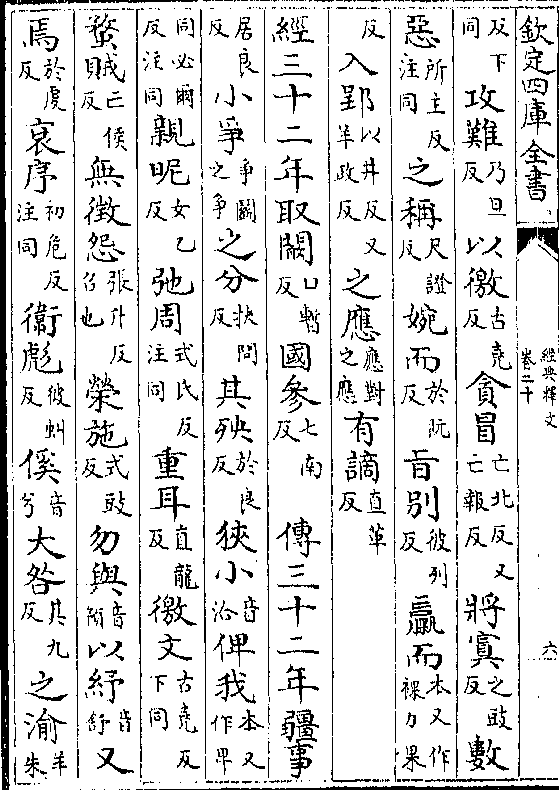 欽定四庫全書
經典釋文
卷二十
六
反下同攻難乃旦反以徼古堯反貪冒亡北反又亡報反將寘之豉反數
惡所主反注同之稱尺證反婉而於阮反旨別彼列反羸而本又作裸力果
反入郢以井反又羊政反之應應對之應有謫直革反
經三十二年取闞口暫反國參七南反傳三十二年疆事
居良反小爭爭鬭之爭之分扶問反其殃於良反狹小音洽俾我本又作卑
同必爾反注同親昵女乙反弛周式氏反注同重耳直龍反徼文古堯反下同
蝥賊亡侯反無徵怨張升反召也榮施式豉反勿與音預以紓音舒又
焉於虔反衰序初危反注同衞彪彼虯反傒音兮大咎其九反之渝羊朱